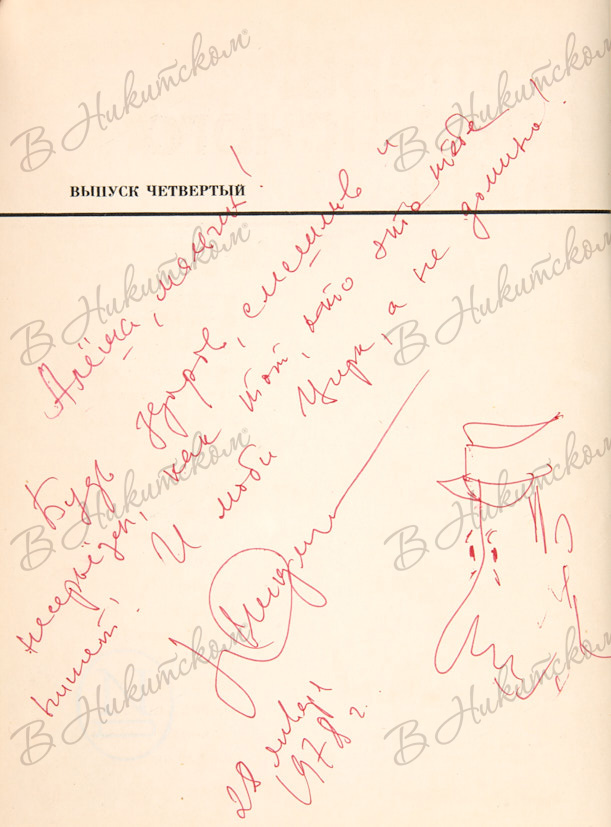 ВЫПУСК ЧЕТВЕРТЫЙ
Алёша, мальчик!
Будь здоров, смешлив и
несерьёзен, как тот, кто это тебе
пишет! И люби Цирк, а не домино!
28 января
1978 г.
В Никитском
В Никитском
В Никитском
В Никитском
В Никитском
В Никитском
В Никитском
В Никитском